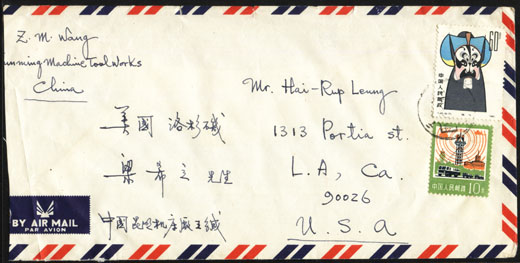 Z. M. Wang
unming Machine Tool Works
China
60分
中国人民邮政
Mr. Hai-Rup Leung
1313 Portia st.
L.A, Ca.
90026
U.S.A
美國 洛杉磯
梁希立 先生
中國昆明机床厰王緘
中国人民邮政 10分
BY AIR MAIL
PAR AVION